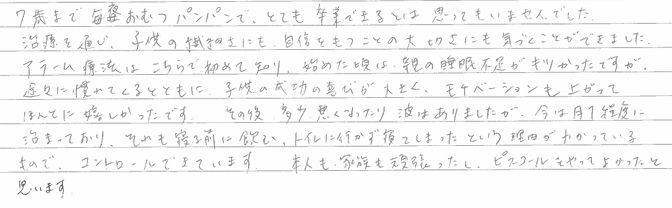 7歳まで毎晩おむつパンパンで、とても卒業できるとは思ってもいませんでした。
治療を通じ、子供の繊細さにも、自信をもつことの大切さにも気づくことができました。
アラーム療法はこちらで初めて知り、始めた頃は、親の睡眠不足がキツかったですが、
徐々に慣れてくるとともに、子供の成功の喜びが大きく、モチベーションも上がって
ほんとに嬉しかったです。 その後、多少悪くなったり波はありましたが、今は月1程度に
治まっており、それも寝る前に飲む、トイレに行かず寝てしまったという理由がわかっている
もので、コントロールできています。 本人も、家族も頑張ったし、ピスクールをやってよかったと
思います